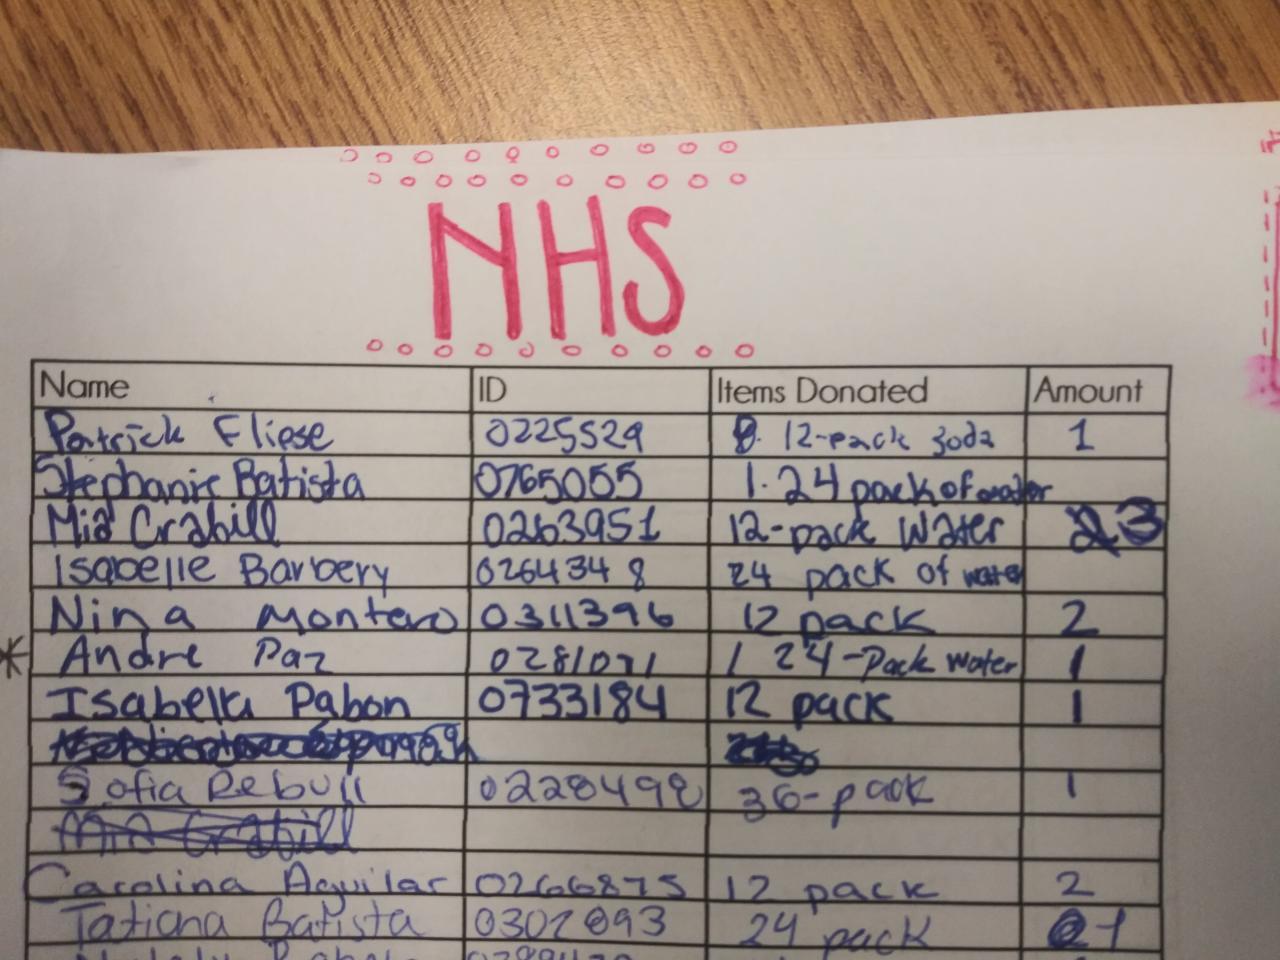 NHS
Name ID Items Donated Amount
Patrick Fliese 0225529 12-pack soda 1
Stephanie Batista 0765055 1. 24 pack of water
Mia Crabill 0263951 12-pack Water 3
Isabelle Barbery 0264348 24 pack of water
Nina Montero 0311396 12 pack 2
Andre Paz 0281071 1 24-Pack Water 1
Isabella Pabon 0733184 12 pack 1
Sofia Rebull 0228498 36-pack 1
Mia Crabill
Carolina Aguilar 0266875 12 pack 2
Tatiana Batista 0302093 24 pack 1